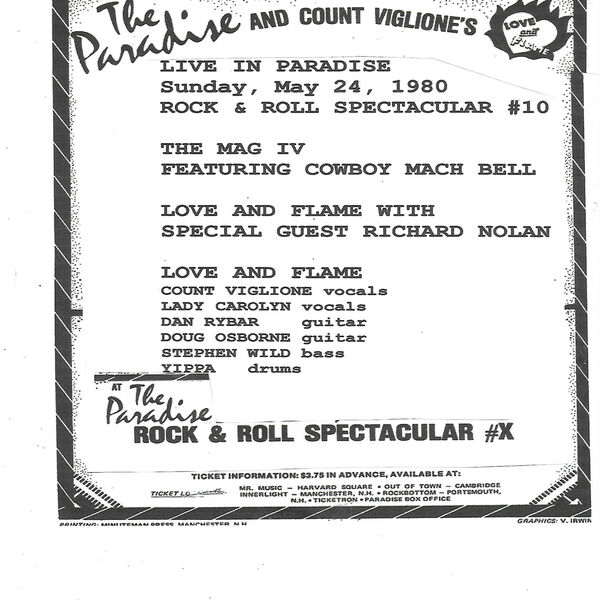 The Paradise AND COUNT VIGLIONE'S
LOVE and FLAME
LIVE IN PARADISE
Sunday, May 24, 1980
ROCK & ROLL SPECTACULAR #10
THE MAG IV
FEATURING COWBOY MACH BELL
LOVE AND FLAME WITH
SPECIAL GUEST RICHARD NOLAN
LOVE AND FLAME
COUNT VIGLIONE vocals
LADY CAROLYN vocals
DAN RYBAR guitar
DOUG OSBORNE guitar
STEPHEN WILD bass
YIPPA drums
AT The Paradise
ROCK & ROLL SPECTACULAR #X
TICKET INFORMATION: $3.75 IN ADVANCE, AVAILABLE AT:
MR. MUSIC – HARVARD SQUARE • OUT OF TOWN – CAMBRIDGE
TICKET I.D. INNERLIGHT – MANCHESTER, N.H. • ROCKBOTTOM – PORTSMOUTH,
N.H. • TICKETRON • PARADISE BOX OFFICE
PRINTING: MINUTEMAN PRESS, MANCHESTER, N.H. GRAPHICS: V. IRWIN